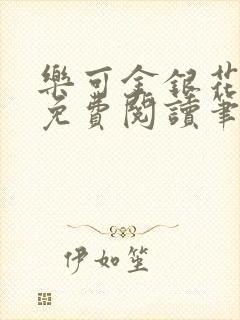 樂可金銀花
免費閱讀筆
伊如笙